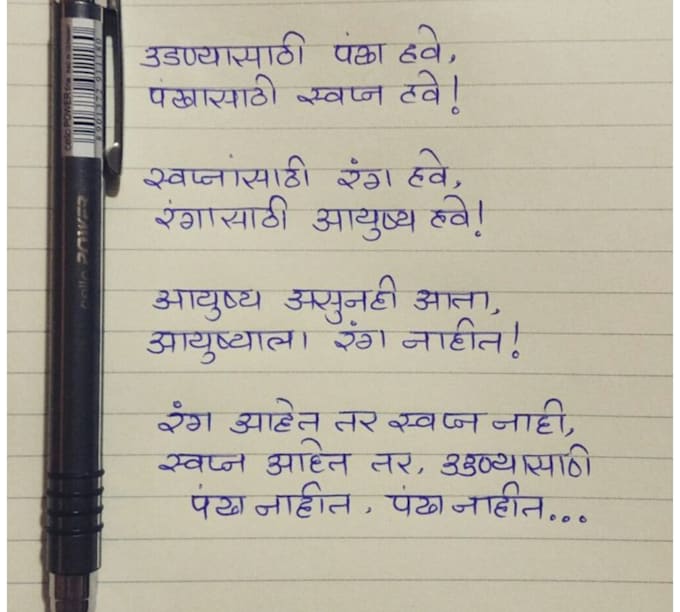 उडण्यासाठी पंख हवे,
पंखासाठी स्वप्न हवे!
स्वप्नांसाठी रंग हवे,
रंगासाठी आयुष्य हवे!
आयुष्य असुनही आता,
आयुष्याला रंग नाहीत!
रंग आहेत तर स्वप्न नाही,
स्वप्न आहेत तर, उडण्यासाठी
पंख नाहीत, पंख नाहीत...
cello POWER